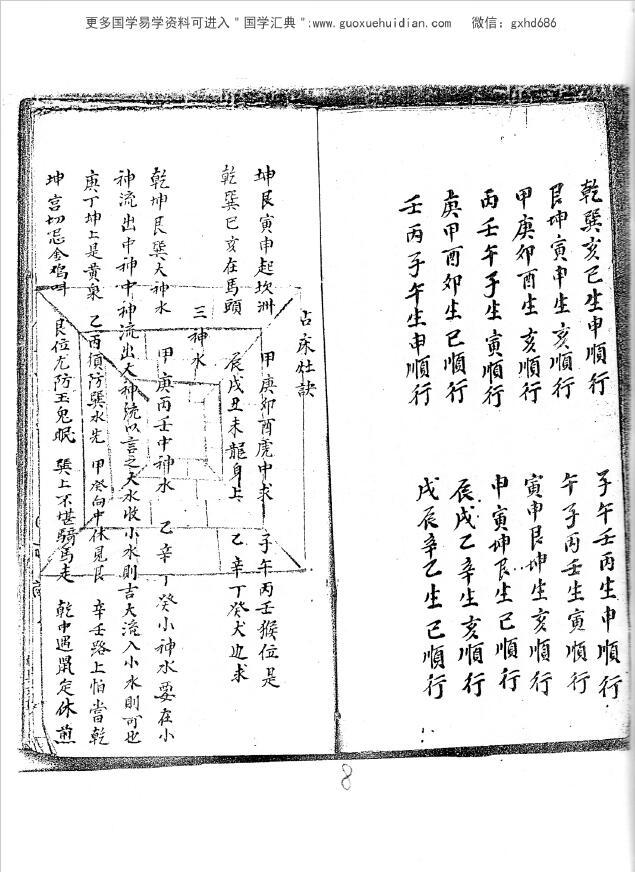 更多国学易学资料可进入＂国学汇典＂:www.guoxuehuidian.com 微信：gxhd686
乾巽亥巳生申順行 子午壬丙生申順行
艮坤寅申生亥順行 午子丙壬生寅順行
甲庚卯酉生亥順行 寅申艮坤生亥順行
丙壬午子生寅順行 申寅坤艮生巳順行
庚甲酉卯生巳順行 辰戌乙辛生亥順行
壬丙子午生申順行 戌辰辛乙生巳順行
占床灶訣
坤艮寅申起坎洲 甲庚卯酉虎中求 子午丙壬猴位是
乾巽巳亥在馬頭 辰戌丑未龍身上 乙辛丁癸犬边求
三神水
乾坤艮巽大神水 甲庚丙壬中神水 乙辛丁癸小神水要在小
神流出中神中神流出大神統以言之大水收小水則吉大流入小水則可也
庚丁坤上是黄泉 乙丙須防巽水先 甲癸向中休見艮 辛壬路上怕當乾
坤宫切忌金鸡叫 艮位尤防玉兔眠 巽上不堪騎馬走 乾中遇鼠定休煎
8